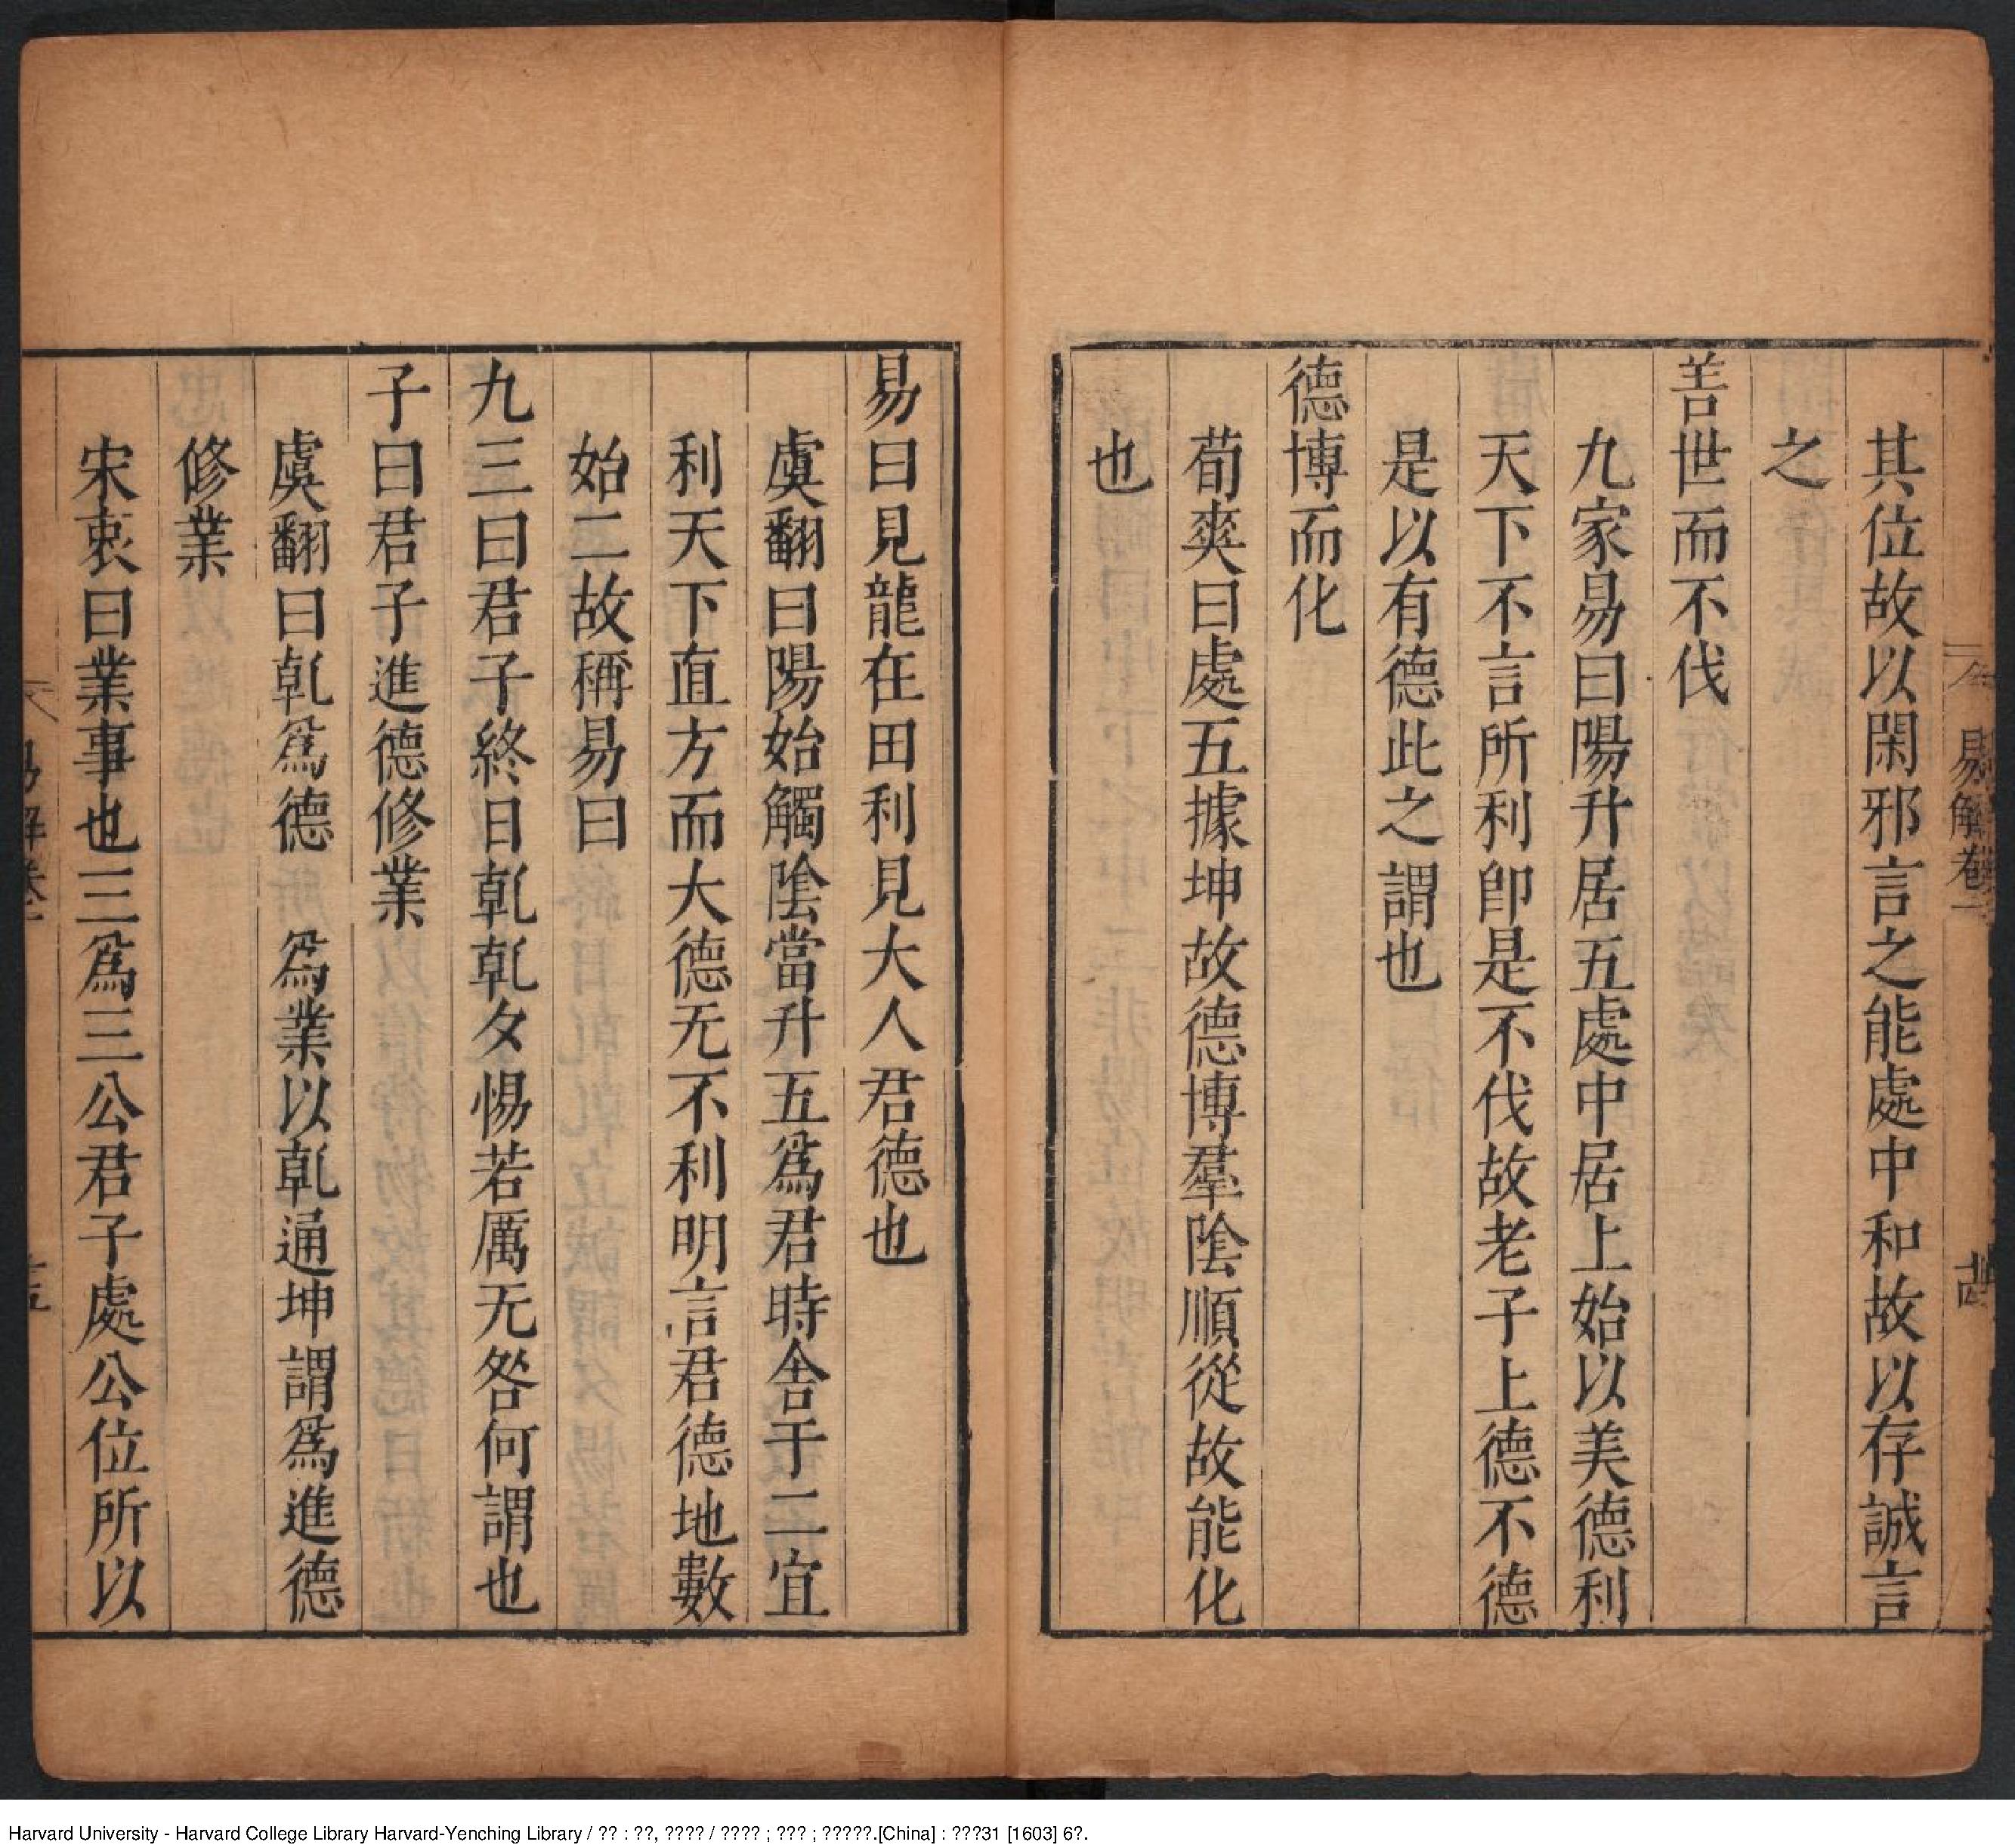 其位故以閑邪言之能處中和故以存誠言
之
善世而不伐
九家易曰陽升居五處中居上始以美德利
天下不言所利卽是不伐故老子上德不德
是以有德此之謂也
德博而化
荀爽曰處五據坤故德博羣陰順從故能化
也
易曰見龍在田利見大人君德也
虞翻曰陽始觸陰當升五爲君時舍于二宜
利天下直方而大德无不利明言君德地數
始二故稱易曰
九三曰君子終日乾乾夕惕若厲无咎何謂也
子曰君子進德修業
虞翻曰乾爲德 所 爲業以乾通坤謂爲進德
修業
宋衷曰業事也三爲三公君子處公位所以
易解卷一
易解卷一
Harvard University - Harvard College Library Harvard-Yenching Library / ?? : ??, ???? / ???? ; ??? ; ?????.[China] : ???31 [1603] 6?.